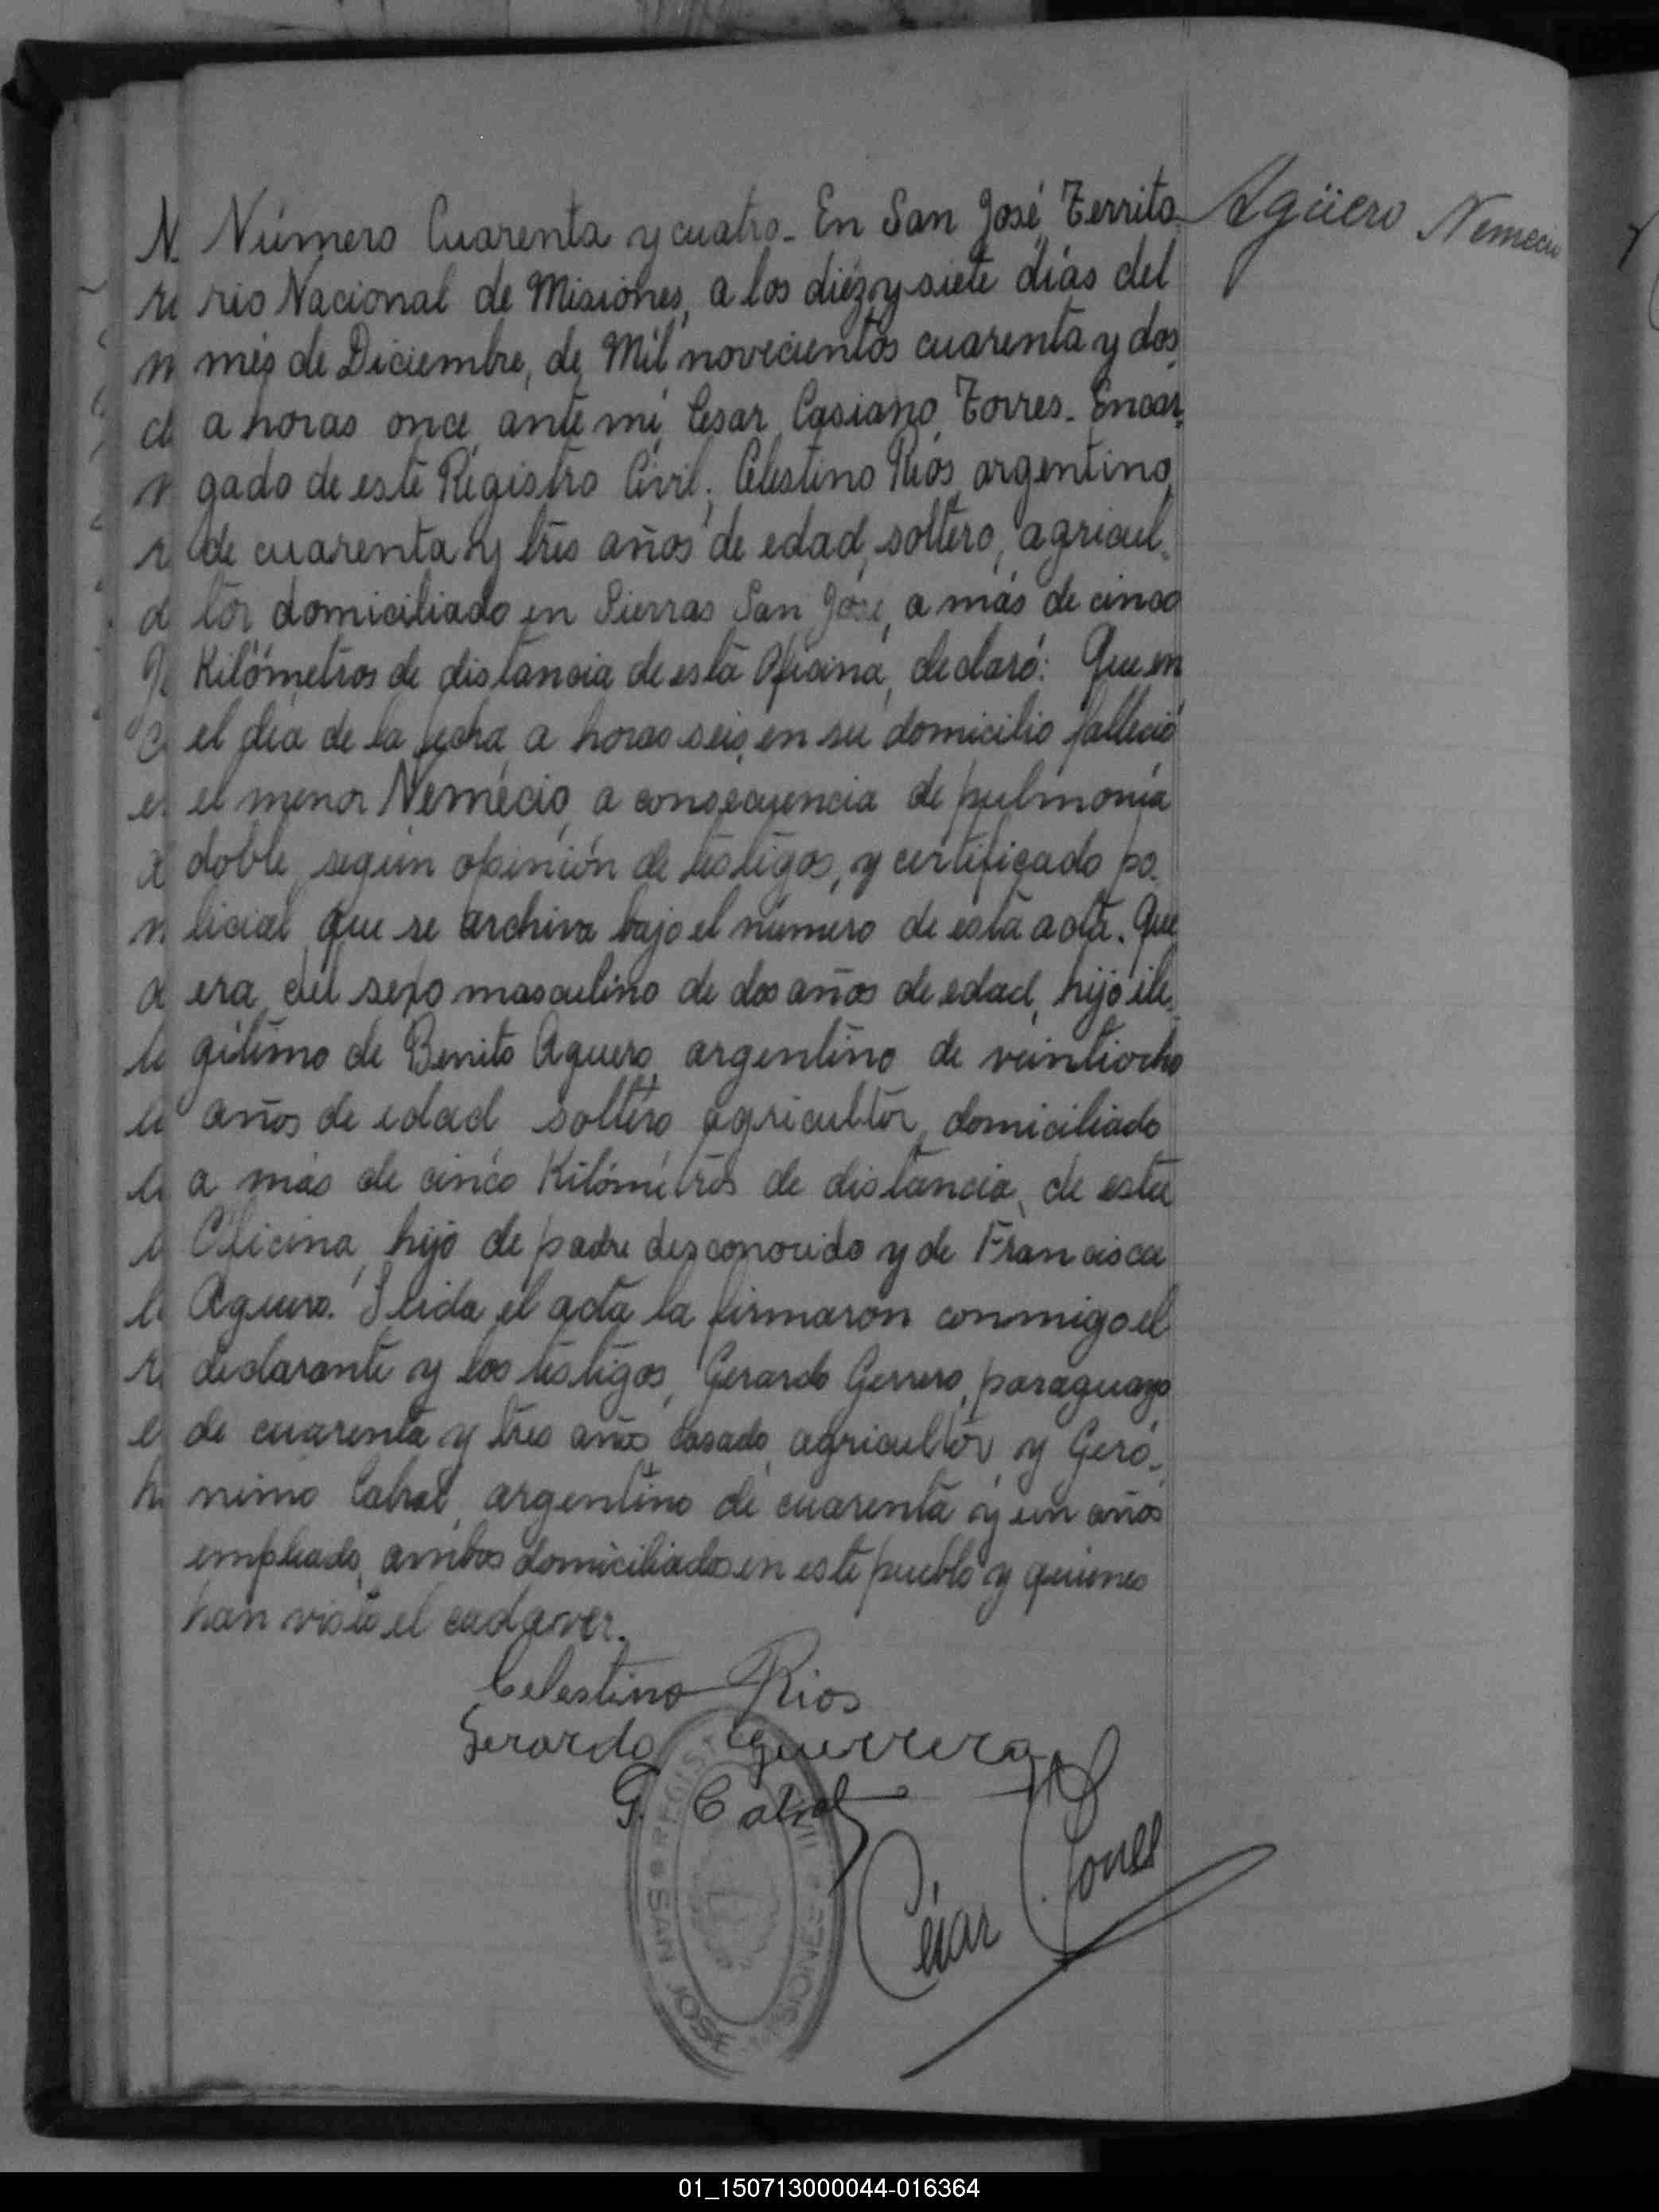 Agüero Nemecio
Número Cuarenta y cuatro - En San José, Territo
rio Nacional de Misiones, a los diez y siete días del
més de Diciembre, de Mil novecientos cuarenta y dos,
a horas once, ante mí, Cesar Casiano Torres - Encar
gado de este Registro Civil; Celestino Rios, argentino,
de cuarenta y tres años de edad, soltero, agricul-
tor domiciliado en Sierras San José, a más de cinco
Kilómetros de distancia de esta Oficina, declaró: Que en
el día de la fecha, a horas seis, en su domicilio falleció
el menor Nemécio, a consecuencia de pulmonía
doble, según opinión de testigos, y certificado po-
licial que se archiva bajo el número de esta acta. Que
era del sexo masculino de dos años de edad, hijo ile-
gitimo de Benito Aguero, argentino de veintiocho
años de edad soltero agricultor, domiciliado
a más de cinco Kilómetros de distancia, de esta
Oficina, hijo de padre desconocido y de Francisca
Aguero. Leida el acta la firmaron conmigo el
declarante y los testigos, Gerardo Gerrero, paraguayo
de cuarenta y tres años casado, agricultor, y Geró-
nimo Cabral, argentino de cuarenta y un años
empleado, ambos domiciliados en este pueblo y quienes
han visto el cadaver.
Celestino Rios
Gerardo guerrero
G. Cabral
César Torres
REGISTRO CIVIL
SAN JOSE
MISIONES
01_150713000044-016364